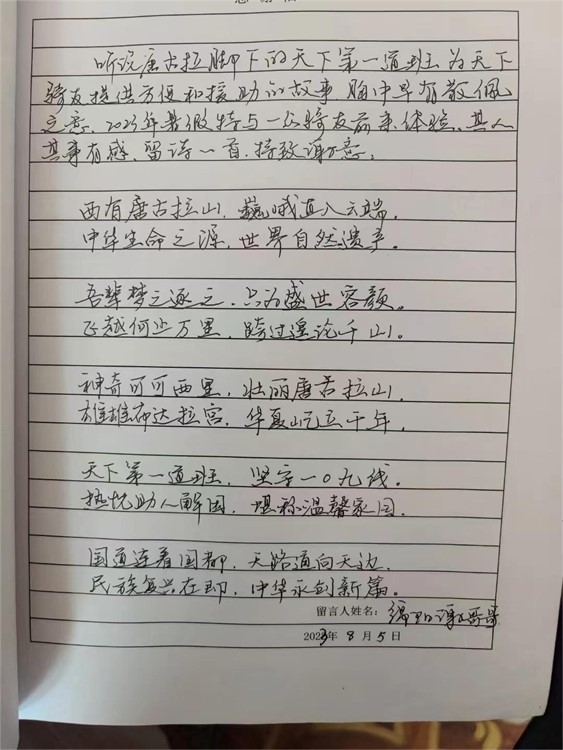 听说唐古拉脚下的天下第一道班为天下
骑友提供方便和援助的故事，胸中早有敬佩
之意，2023年暑假特与一位骑友前来体验，其人
其事有感，留诗一首，特致谢意。
西有唐古拉山，巍峨直入云端，
中华生命之源，世界自然遗产。
吾辈梦之逐之，只为盛世容颜。
飞越何止万里，跨过遑论千山。
神奇可可西里，壮丽唐古拉山，
雄雄布达拉宫，华夏屹立千年，
天下第一道班，坚守一〇九线。
热忱助人解困，堪称温馨家园。
国道连着国都，天路通向天边，
民族复兴在即，中华永创新篇。
留言人姓名：绵阳谭哥哥
2023年8月5日